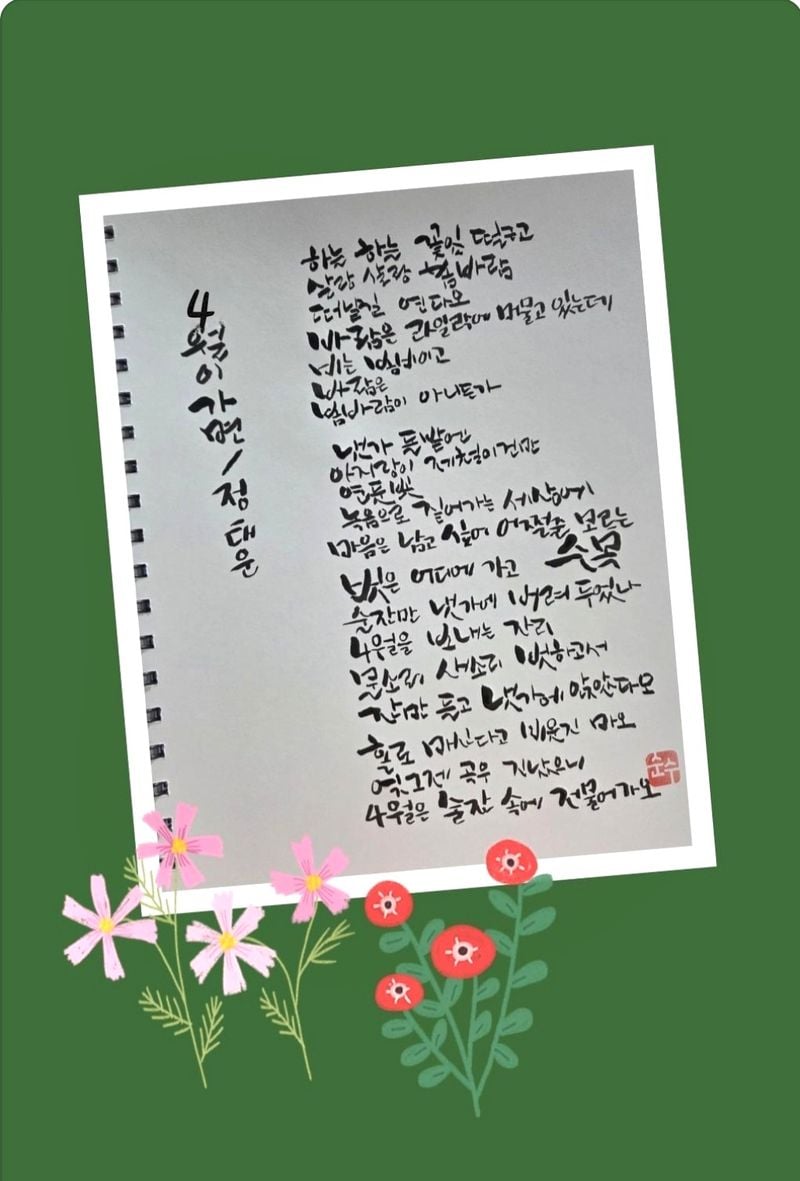 4월이 가면 / 정태운
하늘 하늘 꽃잎 떨구고
살랑 살랑 봄바람
떠날 길 연다오
바람은 라일락에 머물고 있는데
비는 봄비이고
바람은
봄바람이 아니든가
냇가 풀밭엔
아지랑이 제철이건만
연둣빛
녹음으로 짙어가는 세상에
마음은 남고 싶어 어쩔줄 모르는
순목
벗은 어디에 가고
술잔만 냇가에 버려 두었나
4월을 보내는 자리
물소리 새소리 벗하고서
잔만 들고 냇가에 앉았다오
홀로 마신다고 비운진 마오
엊그제 곡우 지났으니
4월은 술잔 속에 저물어가오
순수